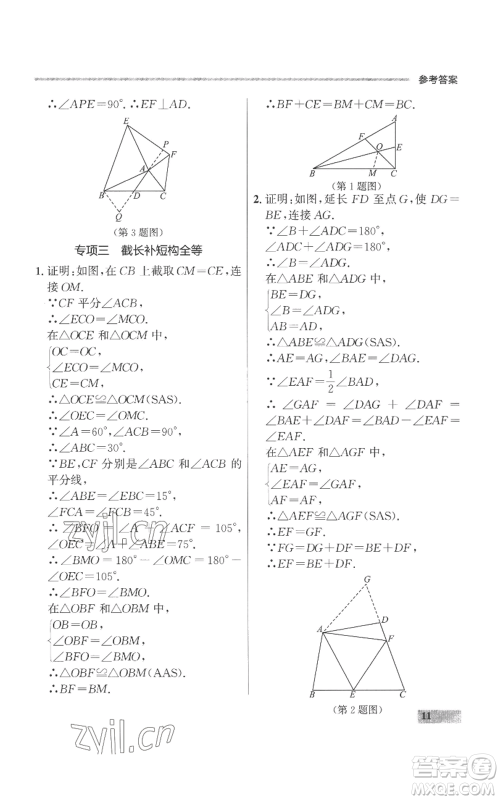 参考答案
∴∠APE=90°.∴EF⊥AD.
E
P
F
A
B
D
C
Q
(第3题图)
专项三 截长补短构全等
1. 证明:如图,在 CB 上截取CM=CE,连
接OM.
∵CF 平分∠ACB,
∴∠ECO=∠MCO.
在△OCE和△OCM中,
OC=OC,
∠ECO=∠MCO,
CE=CM,
∴△OCE≌△OCM(SAS).
∴∠OEC=∠OMC.
∵∠A=60°,∠ACB=90°,
∴∠ABC=30°.
∵BE,CF 分别是∠ABC 和∠ACB的
平分线,
∴∠ABE=∠CBE=15°,
∠FCA=∠FCB=45°.
∴∠BFO=∠A+∠ACF=105°,
∠OEC=∠A+∠ABE=75°.
∴∠BMO=180°-∠OMC=180°-
∠OEC=105°.
在△OBF 和△OBM中,
OB=OB,
∠OBF=∠OBM,
∠BFO=∠BMO,
∴△OBF≌△OBM(AAS).
∴BF=BM.
∴BF+CE=BM+CM=BC.
A
F
O
E
B
M
C
(第1题图)
2. 证明:如图,延长 FD 至点G,使 DG=
BE,连接AG.
∵∠B+∠ADF=180°,
∠ADF+∠ADG=180°,
∴∠B=∠ADG.
在△ABE和△ADG中,
BE=DG,
∠B=∠ADG,
AB=AD,
∴△ABE≌△ADG(SAS).
∴AE=AG,
∠BAE=∠DAG.
∵∠EAF=1/2∠BAD,
∴∠GAF=∠DAG+∠DAF=
∠BAE+∠DAF=∠BAD-∠EAF
=∠EAF.
在△AEF和△AGF中,
AE=AG,
∠EAF=∠GAF,
AF=AF,
∴△AEF≌△AGF(SAS).
∴EF=GF.
∵FG=DG+DF=BE+DF,
∴EF=BE+DF.
G
D
A
F
B
E
C
(第2题图)
11
zyjl.cn
zyjl.cn